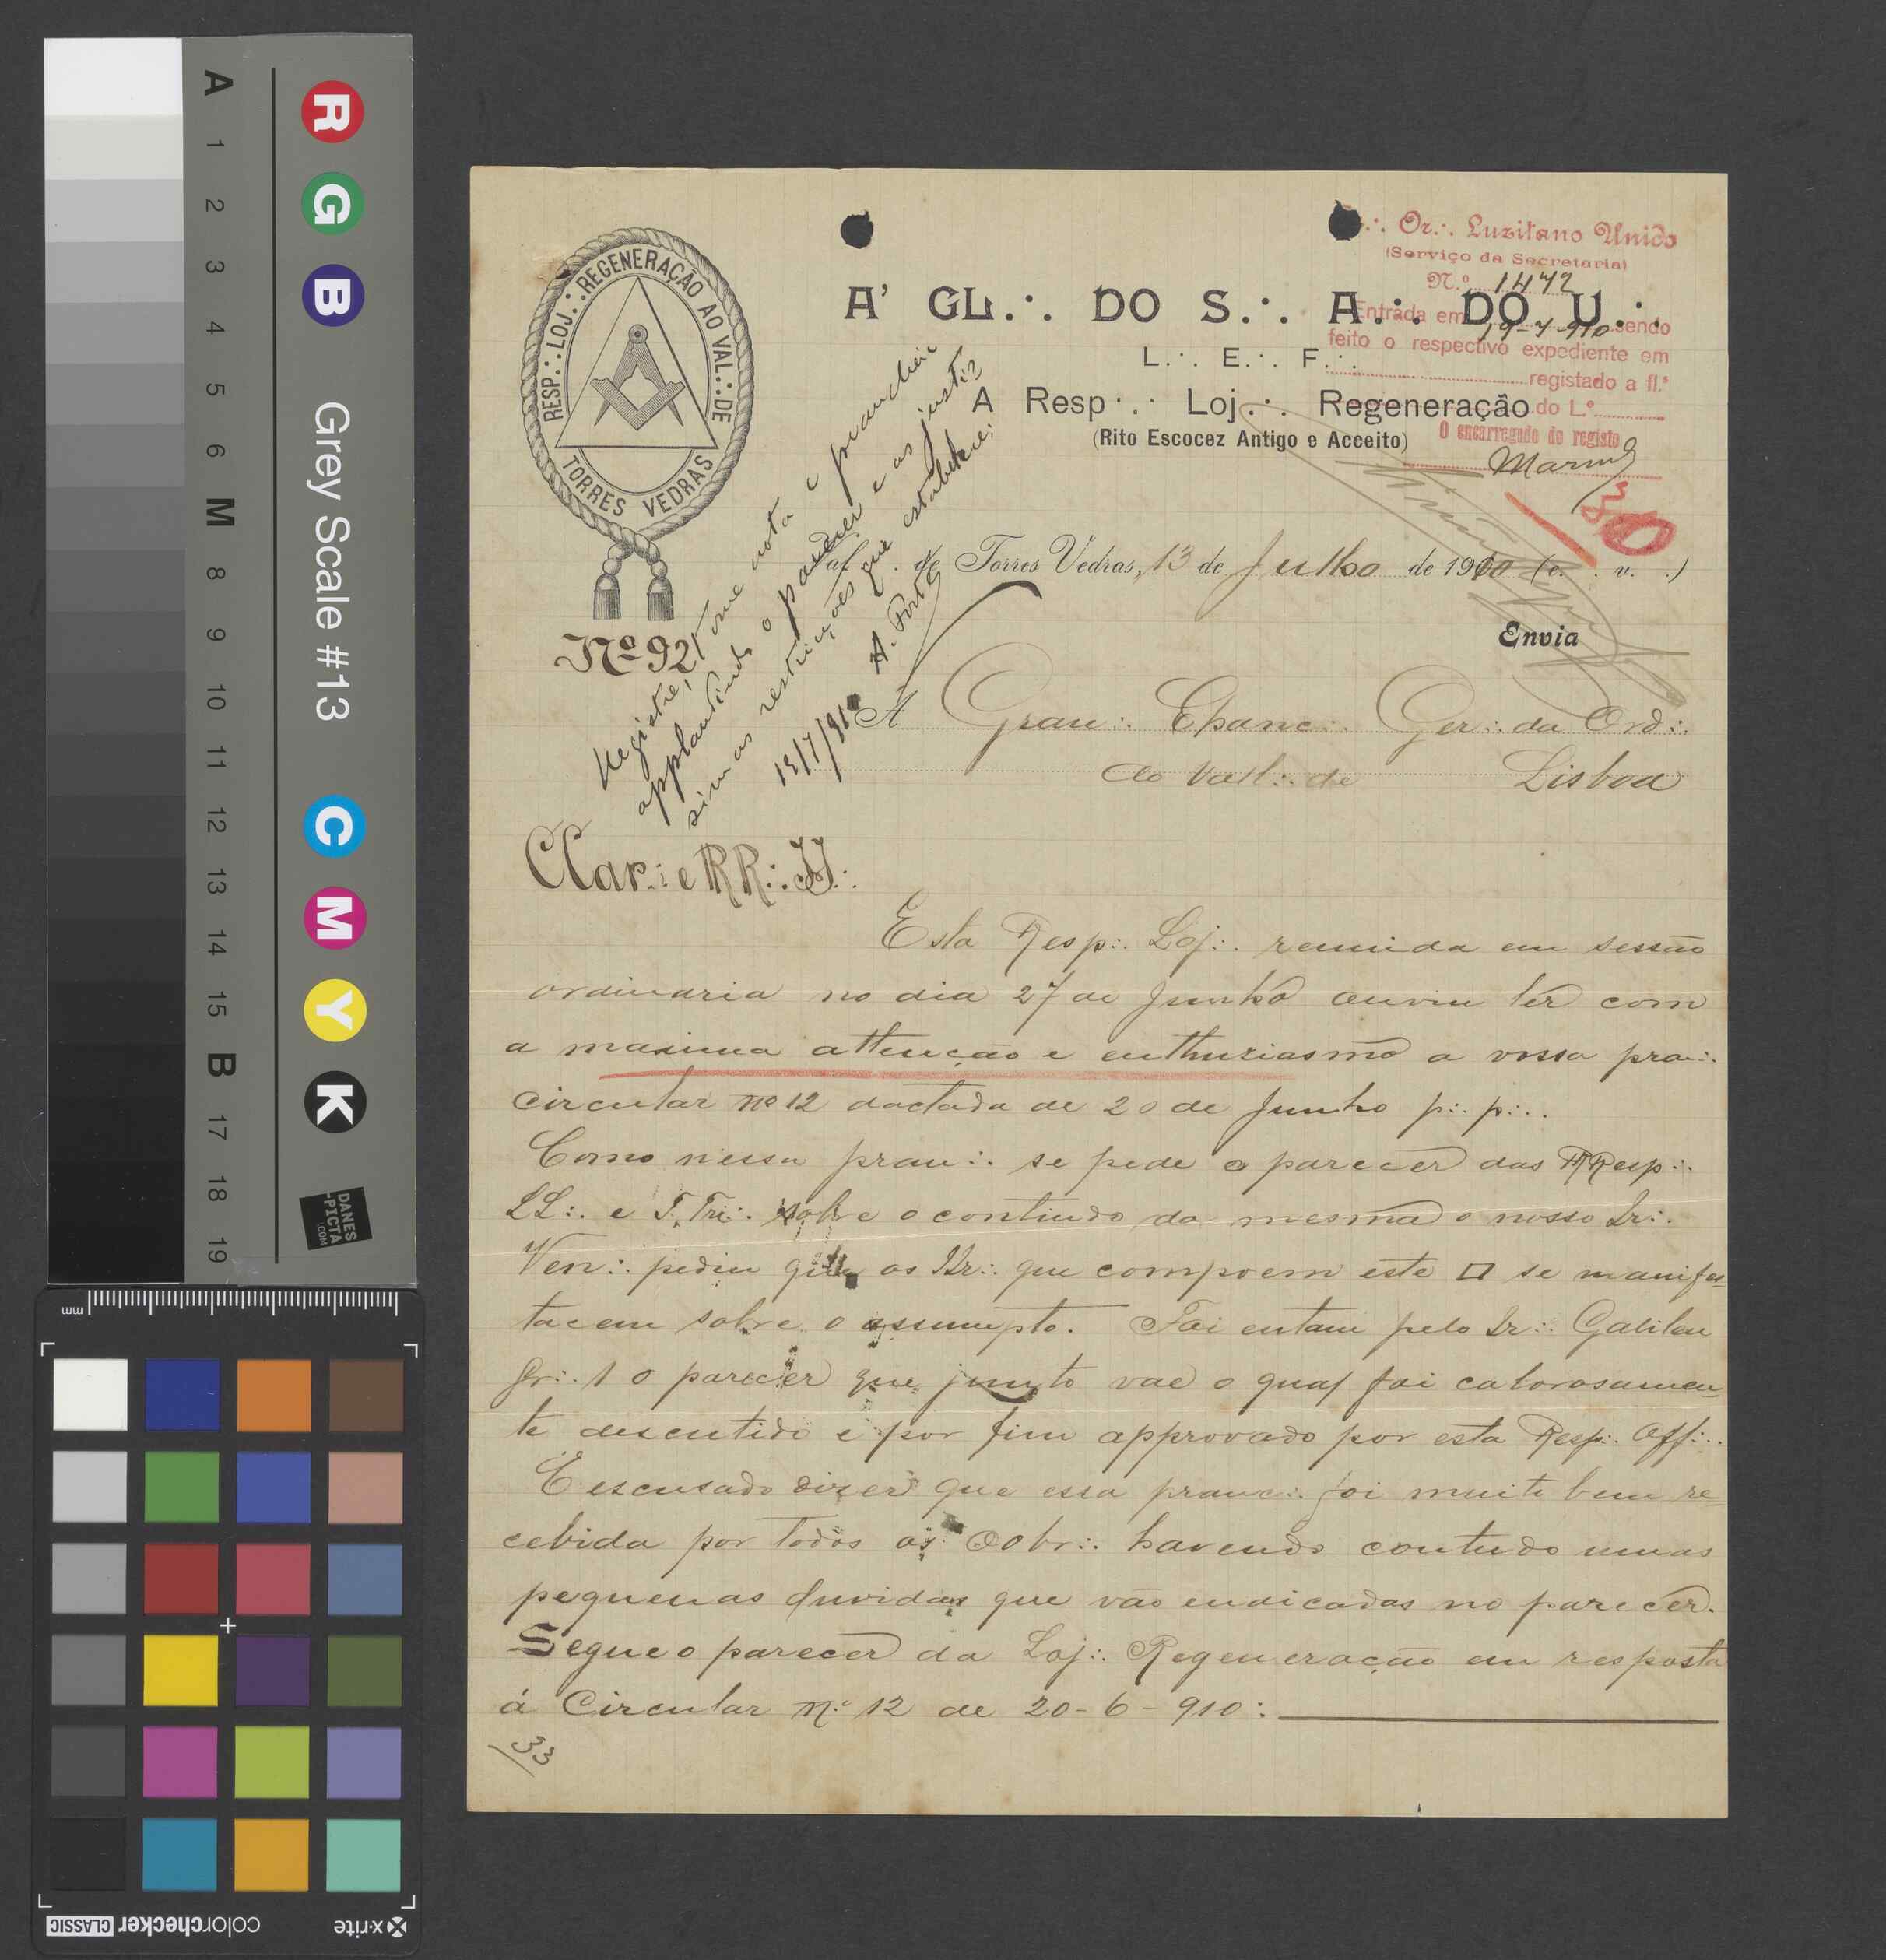 RESP.·. LOJ.·. REGENERAÇÃO AO VAL.·. DE
TORRES VEDRAS
Or.·. Luzitano Unido
(Serviço da Secretaria)
N.º 1472
Entrada em 19-7-910 sendo
feito o respectivo expediente em
registado a fl.ª
do L.º
O encarregado do registo
A' GL.·. DO S.·. A.·. DO U.·.
L.·. E.·. F.·.
A Resp.·. Loj.·. Regeneração
(Rito Escocez Antigo e Acceito)
30
Val.·. de Torres Vedras, 13 de Julho de 1910 (e.·. v.·.)
Nº 92
Envia
Registre, tome nota e pranchêe
applaudindo o parecer e as justis-
simas restricções que estabelece.
19/7/910
Á Gran.·. Chanc.·. Ger.·. da Ord.·.
ao Vall.·. de Lisboa
CCar.·. e RR.·. II.·.
Esta Resp.·. Loj.·. reunida em sessão
ordinaria no dia 27 de Junho ouviu ler com
a maxima attenção e enthuziasmo a vossa pran.·.
circular nº 12 dactada de 20 de Junho p.·. p.·.
Como nessa pran.·. se pede o parecer das RResp.·.
LL.·. e T.Tri.·. sobre o contiudo da mesma o nosso Ir.·.
Ven.·. pediu que os IIr.·. que compoem este □ se manifes-
tacem sobre o assumpto. Foi entam pelo Ir.·. Galileu
gr.·. 1 o parecer que junto vae o qual foi calorosamen-
te descutido e por fim approvado por esta Resp.·. Off.·.
E escusado dizer que essa pranc.·. foi muito bem re-
cebida por todos os OObr.·. havendo contudo umas
pequenas duvidas que vão endicadas no parecer.
Segue o parecer da Loj.·. Regeneração em resposta
á Circular N.º 12 de 20-6-910:
33
A
1
2
3
4
5
6
M
8
9
10
11
12
13
14
15
B
17
18
19
R G B
Grey Scale #13
C M Y K
DANES
-PICTA
.COM
mm
x-rite
colorchecker CLASSIC